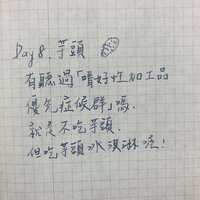 Day 8. 芋頭
有聽過「嗜好性加工品
優先症候群」嗎.
就是不吃芋頭.
但吃芋頭冰淇淋唷!